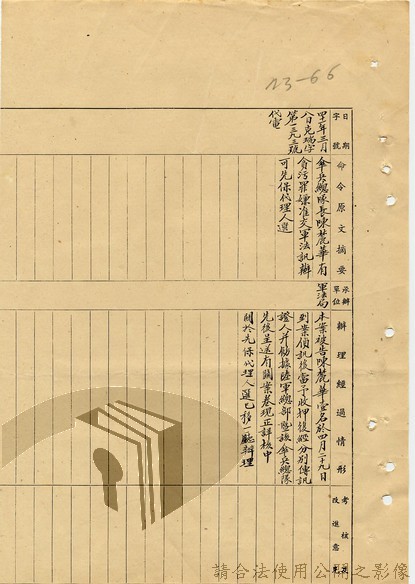 23-66
日期
字號
命令原文摘要
承辦單位
辦理經過情形
考核及
改進意見
四一年三月
八日克瑞字
第一三九三號
代電
傘兵總隊長陳麗華有
貪污罪嫌准交軍法訊辦
可先保代理人選
軍法局
本案被告陳麗華壹名於四月二十九日
到案偵訊後當予收押後經分別傳訊
證人并勤據陸軍總部暨該傘兵總隊
先後呈送有關案卷現正詳核中
關於先保代理人選已移一廳辦理
請合法使用公開之影像